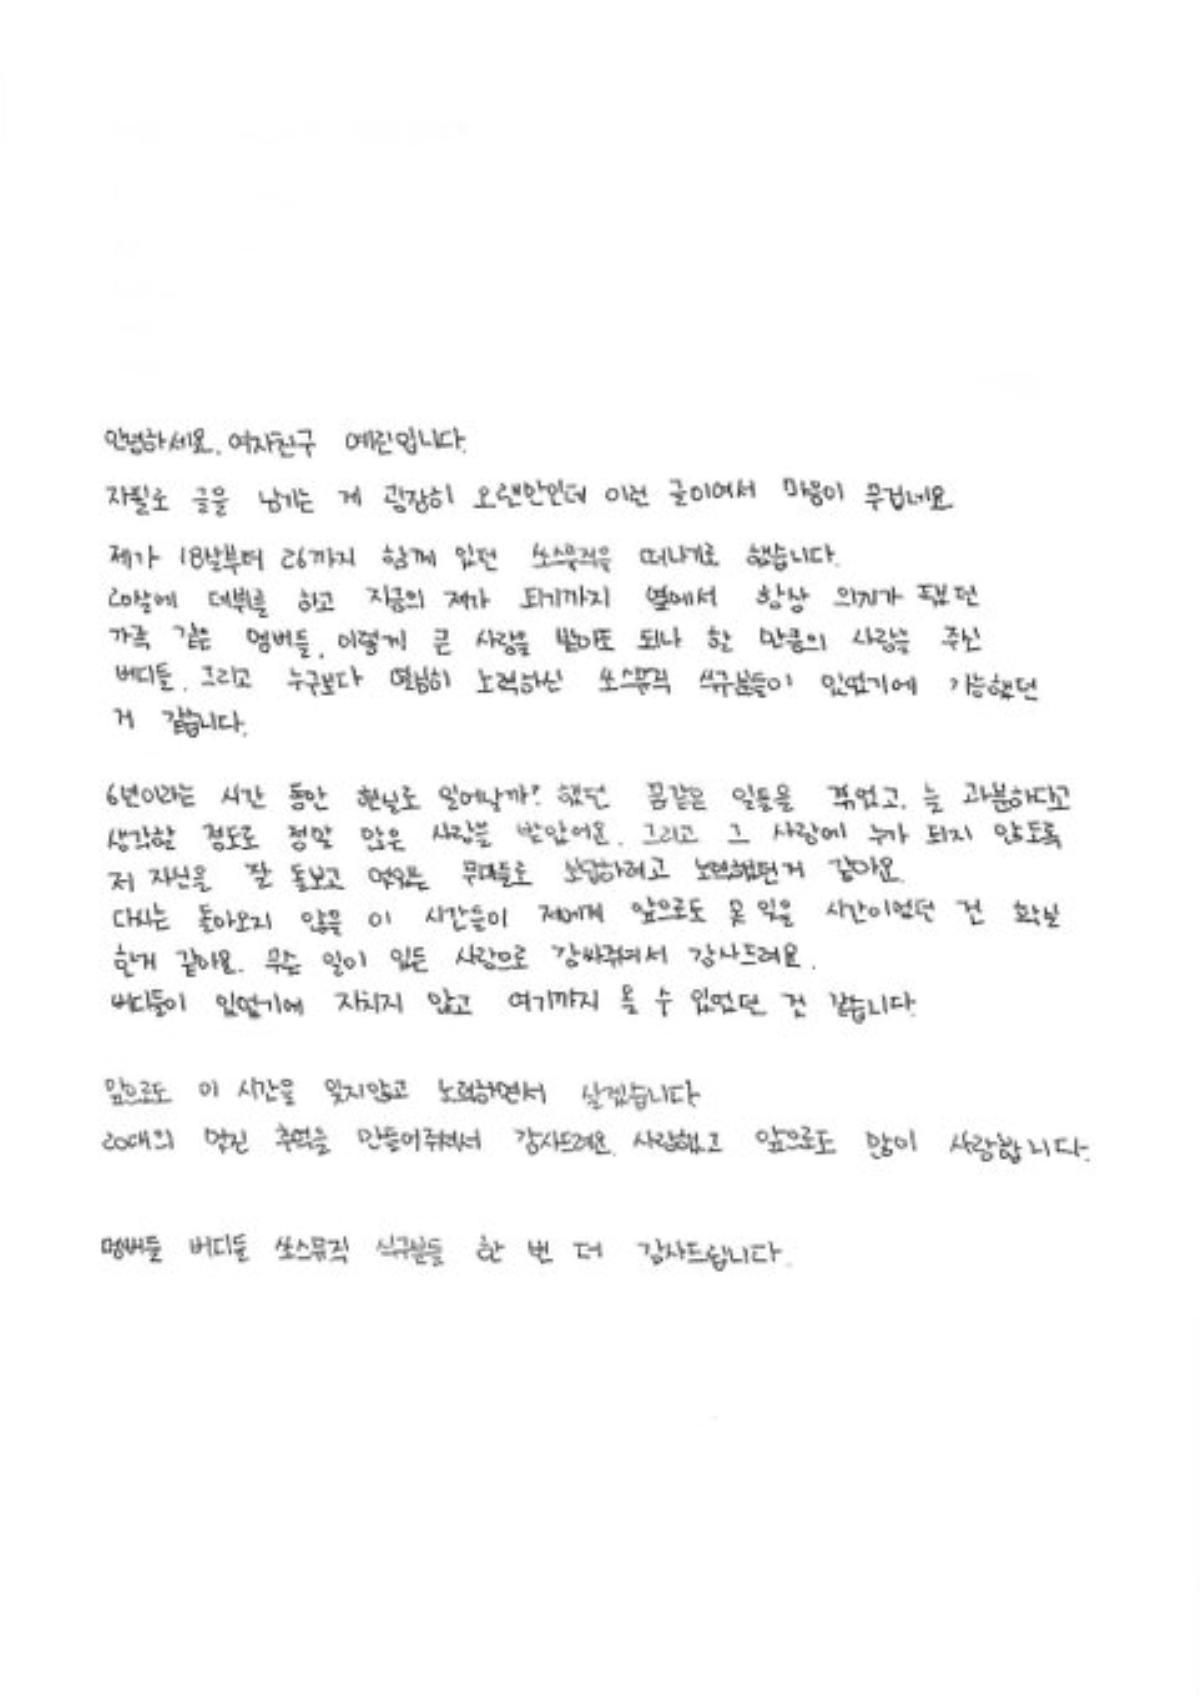 안녕하세요. 여자친구 예린입니다.
자필로 글을 남기는 게 굉장히 오랜만인데 이런 글이여서 마음이 무겁네요
제가 18살부터 26까지 함께 있던 쏘스뮤직을 떠나기로 했습니다.
20살에 데뷔를 하고 지금의 제가 되기까지 옆에서 항상 의지가 됐던
가족 같은 멤버들, 이렇게 큰 사랑을 받아도 되나 할 만큼의 사랑을 주신
버디들, 그리고 누구보다 열심히 노력하신 쏘스뮤직 식구분들이 있었기에 가능했던
거 같습니다.
6년이라는 시간 동안 현실로 일어날까? 했던 꿈같은 일들을 겪었고, 늘 과분하다고
생각할 정도로 정말 많은 사랑을 받았어요. 그리고 그 사랑에 누가 되지 않도록
저 자신을 잘 돌보고 멋있는 무대들로 보답하려고 노력했던거 같아요.
다시는 돌아오지 않을 이 시간들이 저에게 앞으로도 못 잊을 시간이었던 건 확실
한거 같아요. 무슨 일이 있든 사랑으로 감싸줘여서 감사드려요.
버디들이 있었기에 지치지 않고 여기까지 올 수 있었던 건 같습니다.
앞으로도 이 시간을 잊지않고 노력하면서 살겠습니다
20대의 멋진 추억을 만들어줘여서 감사드려요. 사랑했고 앞으로도 많이 사랑합니다.
멤버들 버디들 쏘스뮤직 식구분들 한 번 더 감사드립니다.